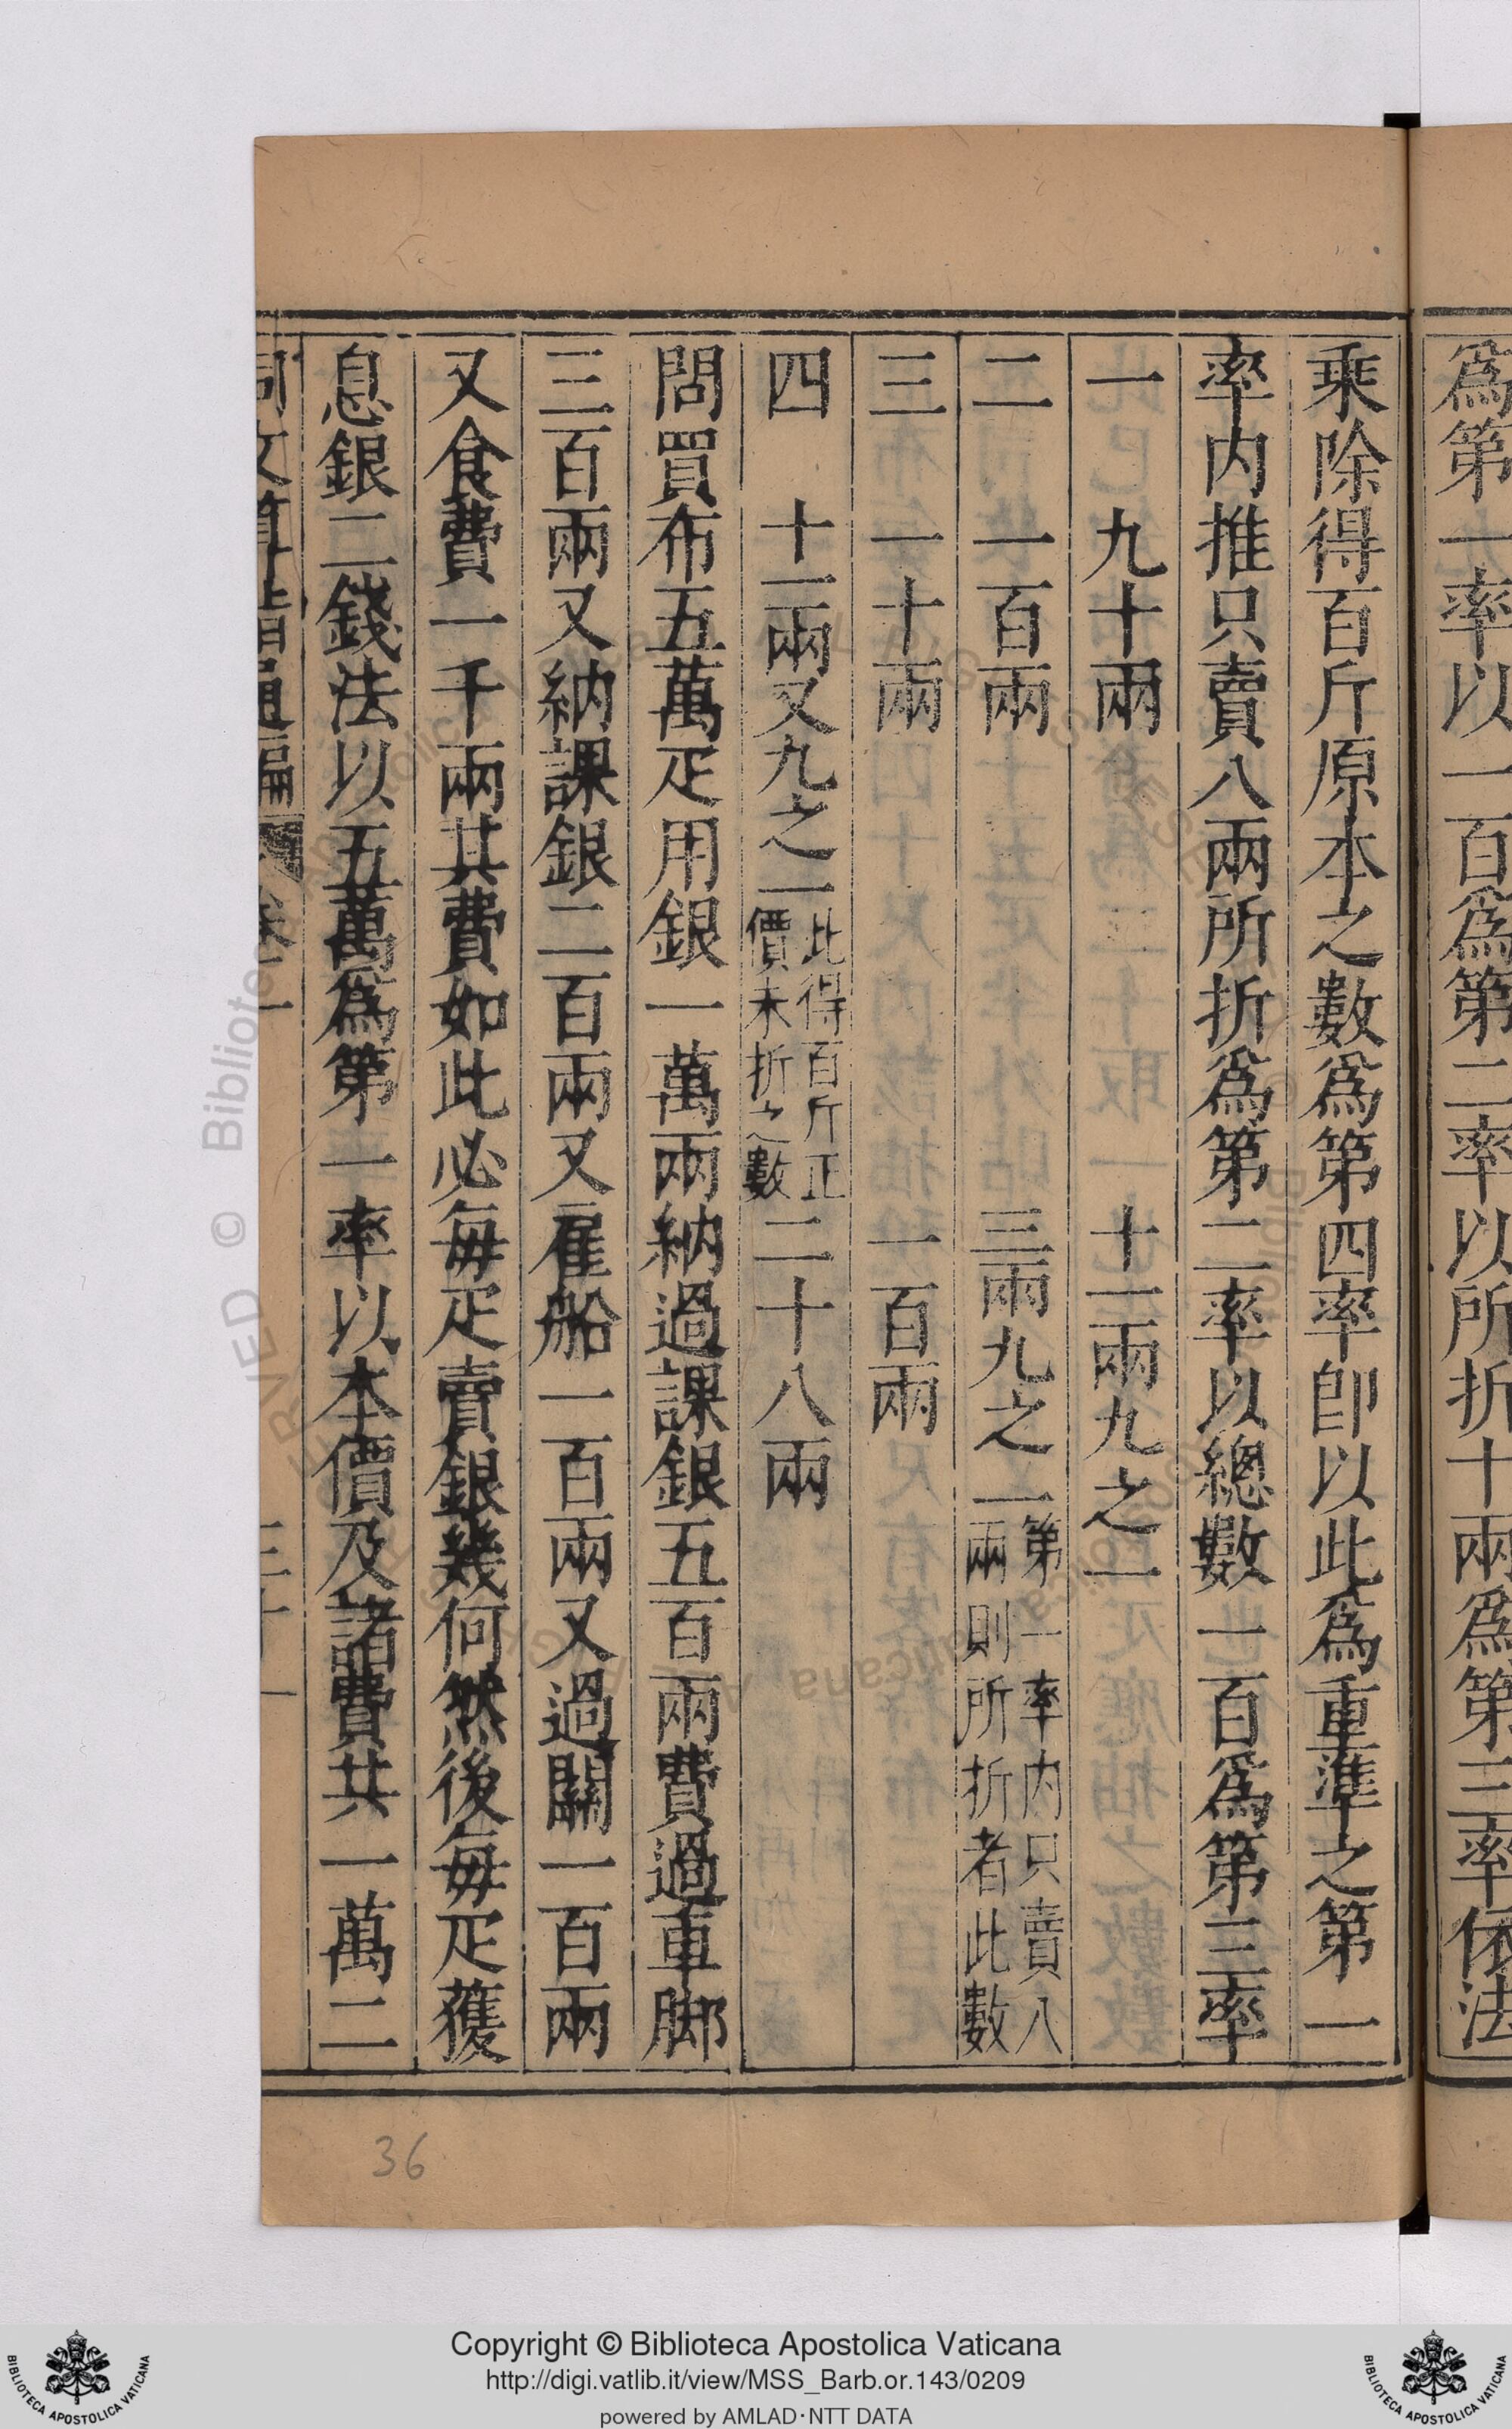 爲第一率以一百爲第二率以所折十兩爲第三率依法
乘除得百斤原本之數爲第四率卽以此爲重準之第一
率内推只賣八兩所折爲第二率以總數一百爲第三率
一 九十兩 十一兩九之一
二 一百兩 三兩九之一 第一率内只賣八
兩則所折者此數
三 一十兩 一百兩
四 十一兩又九之一 此得百斤正
價未折之數 二十八兩
問買布五萬疋用銀一萬兩納過課銀五百兩費過車脚
三百兩又納課銀二百兩又雇船一百兩又過關一百兩
又食費一千兩其費如此必每疋賣銀幾何然後每疋獲
息銀二錢法以五萬爲第一率以本價及諸費共一萬二
同文算指通編 卷二 三十一
36
Copyright © Biblioteca Apostolica Vaticana
http://digi.vatlib.it/view/MSS_Barb.or.143/0209
powered by AMLAD·NTT DATA
BIBLIOTECA APOSTOLICA VATICANA
BIBLIOTECA APOSTOLICA VATICANA